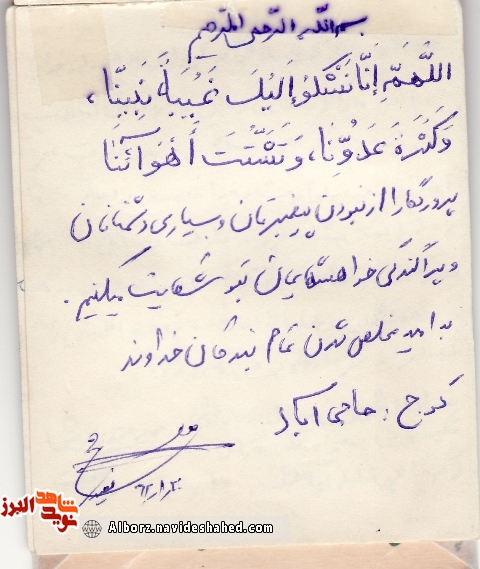 بسم الله الرحمن الرحیم
اللَّهُمَّ إِنَّا نَشْكُوُ إِلَيْكَ غَيْبَةَ نَبِيِّنَا،
وَكَثْرَةَ عَدُوِّنَا، وَتَشَتُّتَ أَهْوَائَنَا
پروردگارا از نبودن پیغمبرمان و بسیاری دشمنانمان
و پراکندگی خواهشهایمان بتو شکایت میکنیم.
به امید مخلص شدن تمام بندگان خداوند
کرج: حاجی آباد
شاهد
نوید
البرز
Alborz.navideshahed.com